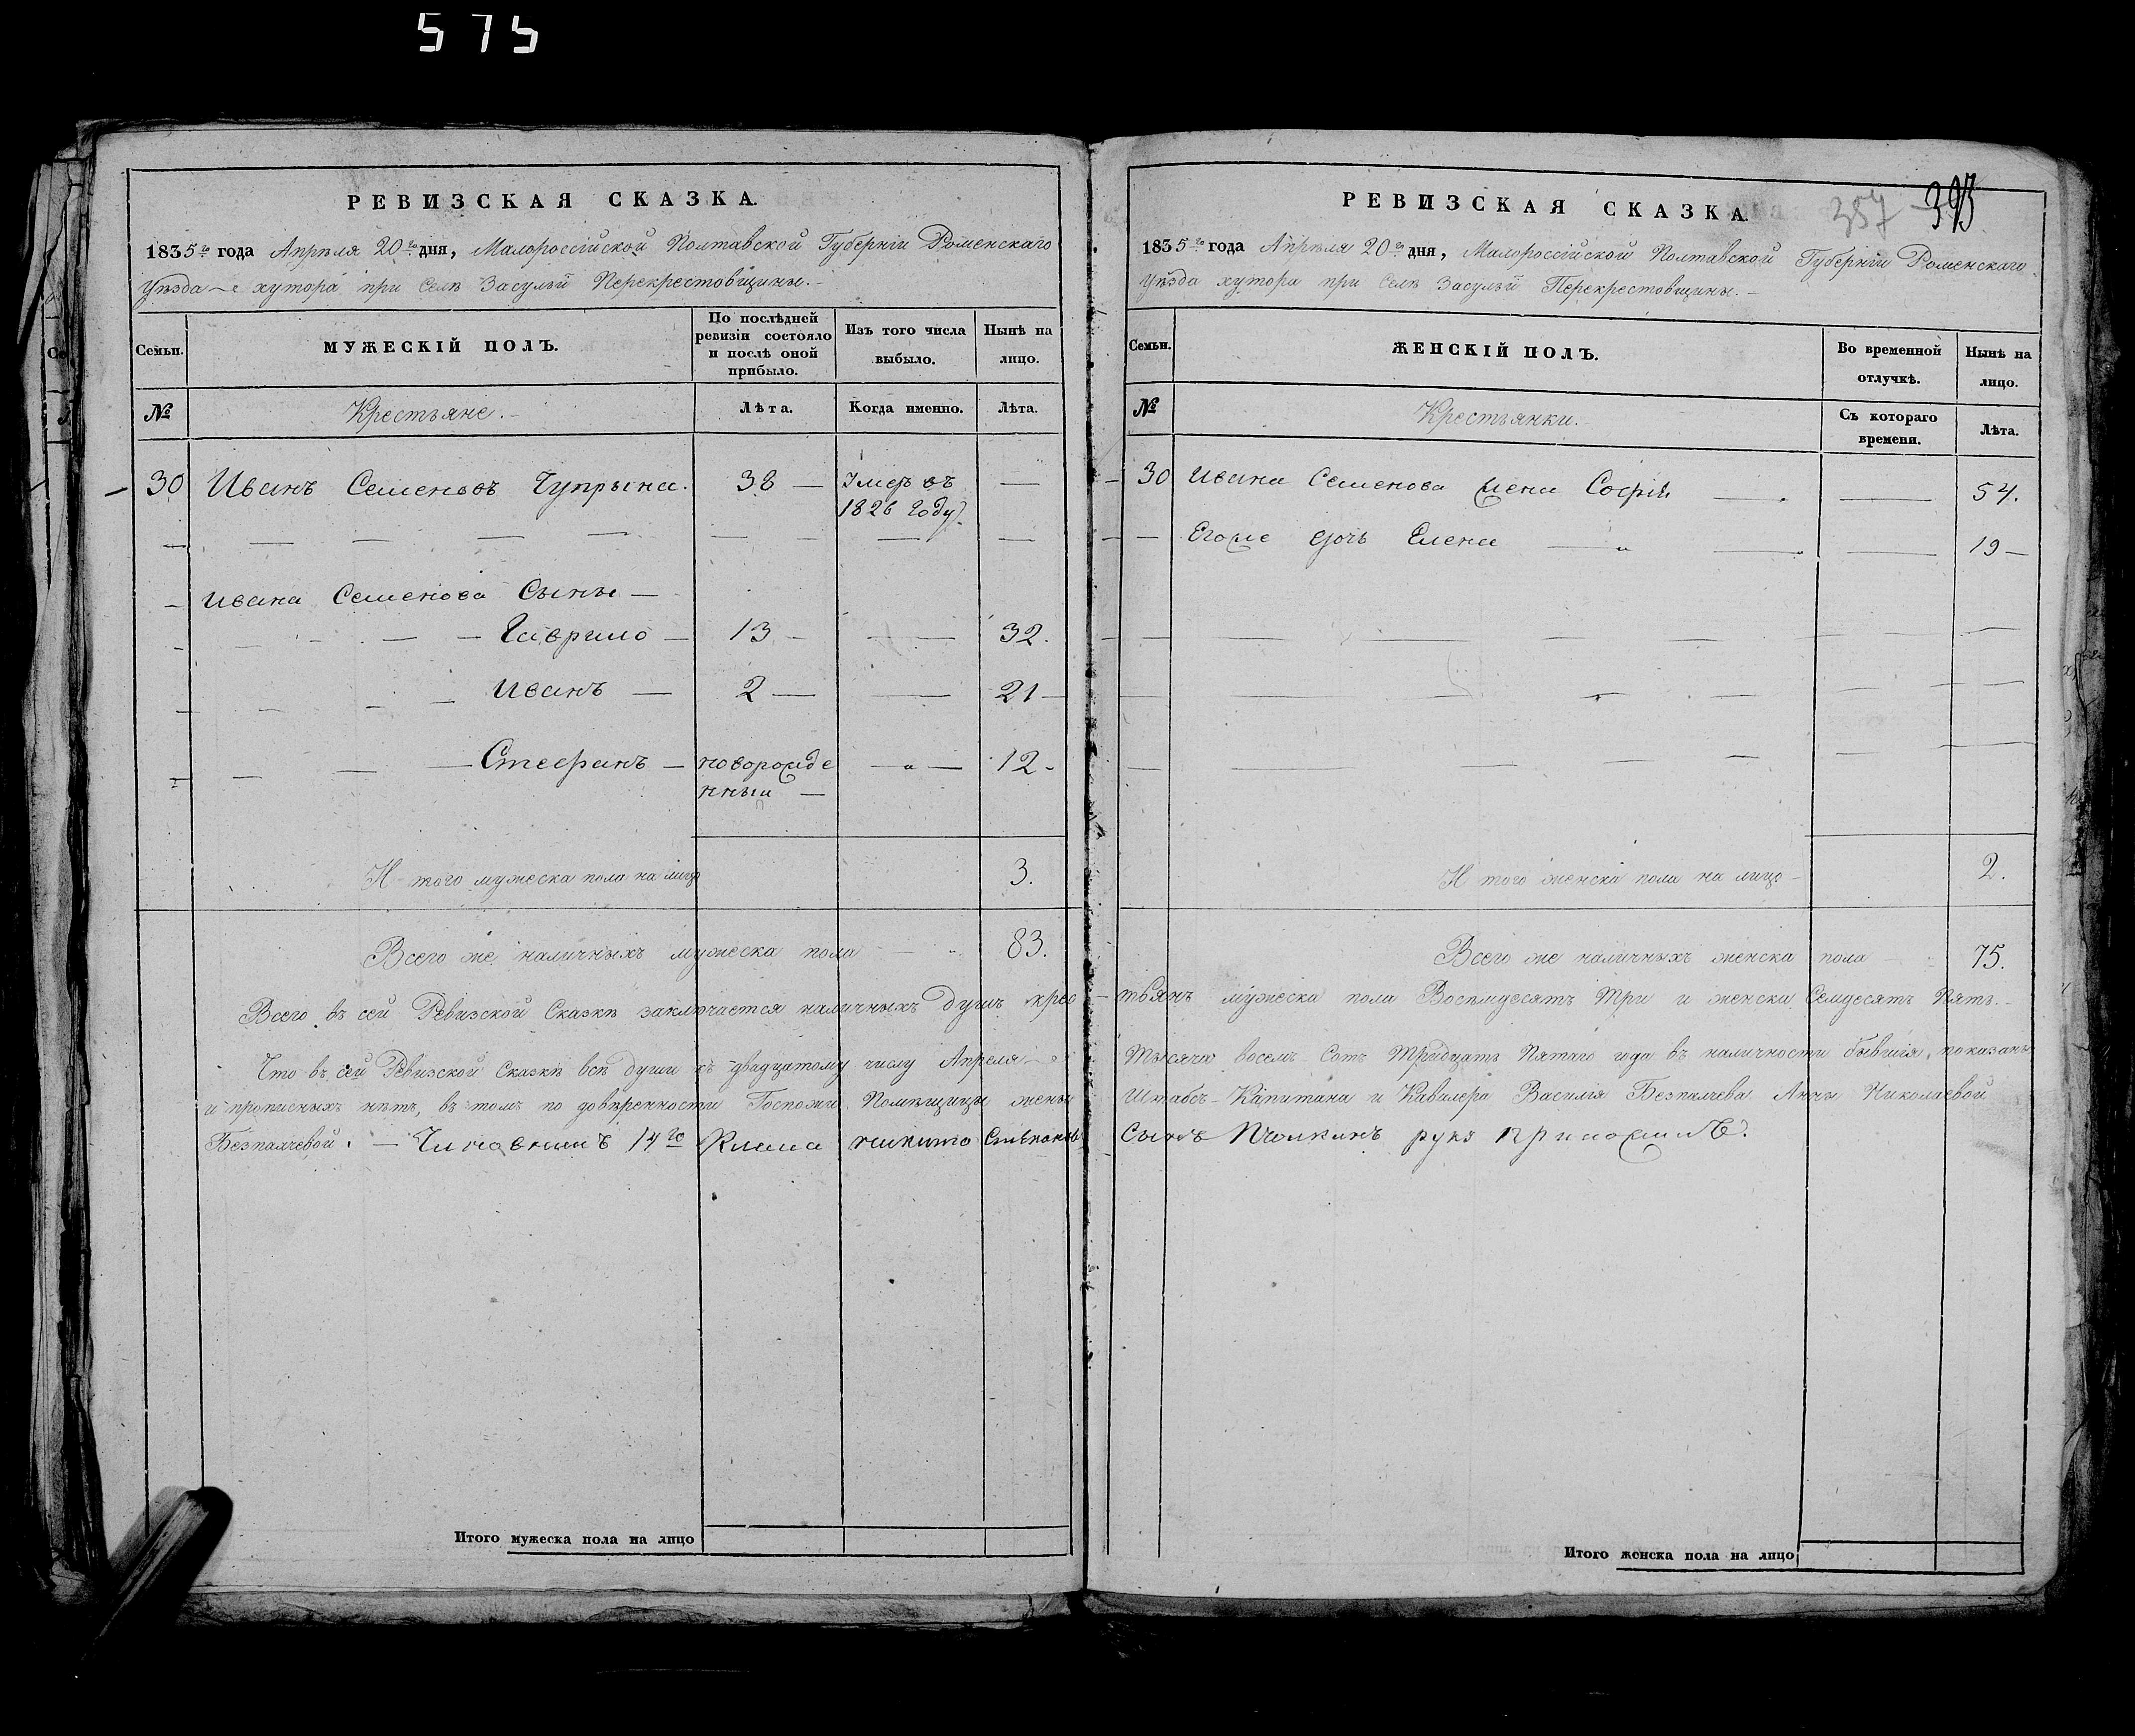 575
РЕВИЗСКАЯ СКАЗКА.
1835го года Апрѣля 20го дня, Малороссійской Полтавской Губерніи Роменскаго
Уѣзда хутора при Селѣ Засульи Перекрестовщины.
Семьи.
МУЖЕСКІЙ ПОЛЪ.
По послѣдней ревизіи состояло и послѣ оной прибыло.
Изъ того числа выбыло.
Нынѣ на лицо.
№
Крестьяне.
Лѣта.
Когда именно.
Лѣта.
30 Иванъ Семеновъ Чупрына. 38 — Умеръ въ —
1826 году.
Ивана Семенова Сыны —
Гаврило — 13 — — 32.
Иванъ — 2 — — 21 —
Стефанъ — новорожде — 12 -
нный —
И того мужеска пола на лицо 3.
Всего же наличныхъ мужеска пола 83.
Всего въ сей Ревизской Сказкѣ заключается наличныхъ душъ крес
Что въ сей Ревизской Сказкѣ всѣ души къ двадцатому числу Апреля
и прописныхъ нѣтъ, въ томъ по довѣренности Госпожи Помѣщицы жены
Безпалчевой. — Чиновникъ 14го Класа никита Степановъ
Итого мужеска пола на лицо
357 393
РЕВИЗСКАЯ СКАЗКА.
1835го года Апрѣля 20го дня, Малороссійской Полтавской Губерніи Роменскаго
Уѣзда хутора при Селѣ Засульи Перекрестовщины.
Семьи.
ЖЕНСКІЙ ПОЛЪ.
Во временной отлучкѣ.
Нынѣ на лицо.
№
Крестьянки.
Съ котораго времени.
Лѣта.
30 Ивана Семенова жена Софія — — 54.
Егоже дочь Елена — — 19 —
И того женска пола на лицо - 2.
Всего же наличныхъ женска пола 75.
тьянъ мужеска пола Восемдесятъ три и женска Семдесятъ Пять.
тысяча восемъ Сотъ тридцать Пятаго года въ наличности бывшія, показаны
Штабсъ-Капитана и Кавалера Василія Безпалчева Анны Николаевой
Сынъ руку приложилъ.
Итого женска пола на лицо